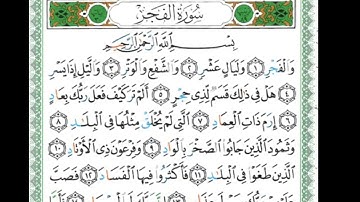 سُورَةُ الْفَجْرِ
بِسْمِ اللَّهِ الرَّحْمَٰنِ الرَّحِيمِ
وَالْفَجْرِ ﴿١﴾ وَلَيَالٍ عَشْرٍ ﴿٢﴾ وَالشَّفْعِ وَالْوَتْرِ ﴿٣﴾ وَاللَّيْلِ إِذَا يَسْرِ
﴿٤﴾ هَلْ فِي ذَٰلِكَ قَسَمٌ لِّذِي حِجْرٍ ﴿٥﴾ أَلَمْ تَرَ كَيْفَ فَعَلَ رَبُّكَ بِعَادٍ
﴿٦﴾ إِرَمَ ذَاتِ الْعِمَادِ ﴿٧﴾ الَّتِي لَمْ يُخْلَقْ مِثْلُهَا فِي الْبِلَادِ ﴿٨﴾
وَثَمُودَ الَّذِينَ جَابُوا الصَّخْرَ بِالْوَادِ ﴿٩﴾ وَفِرْعَوْنَ ذِي الْأَوْتَادِ ﴿١٠﴾
الَّذِينَ طَغَوْا فِي الْبِلَادِ ﴿١١﴾ فَأَكْثَرُوا فِيهَا الْفَسَادَ ﴿١٢﴾ فَصَبَّ